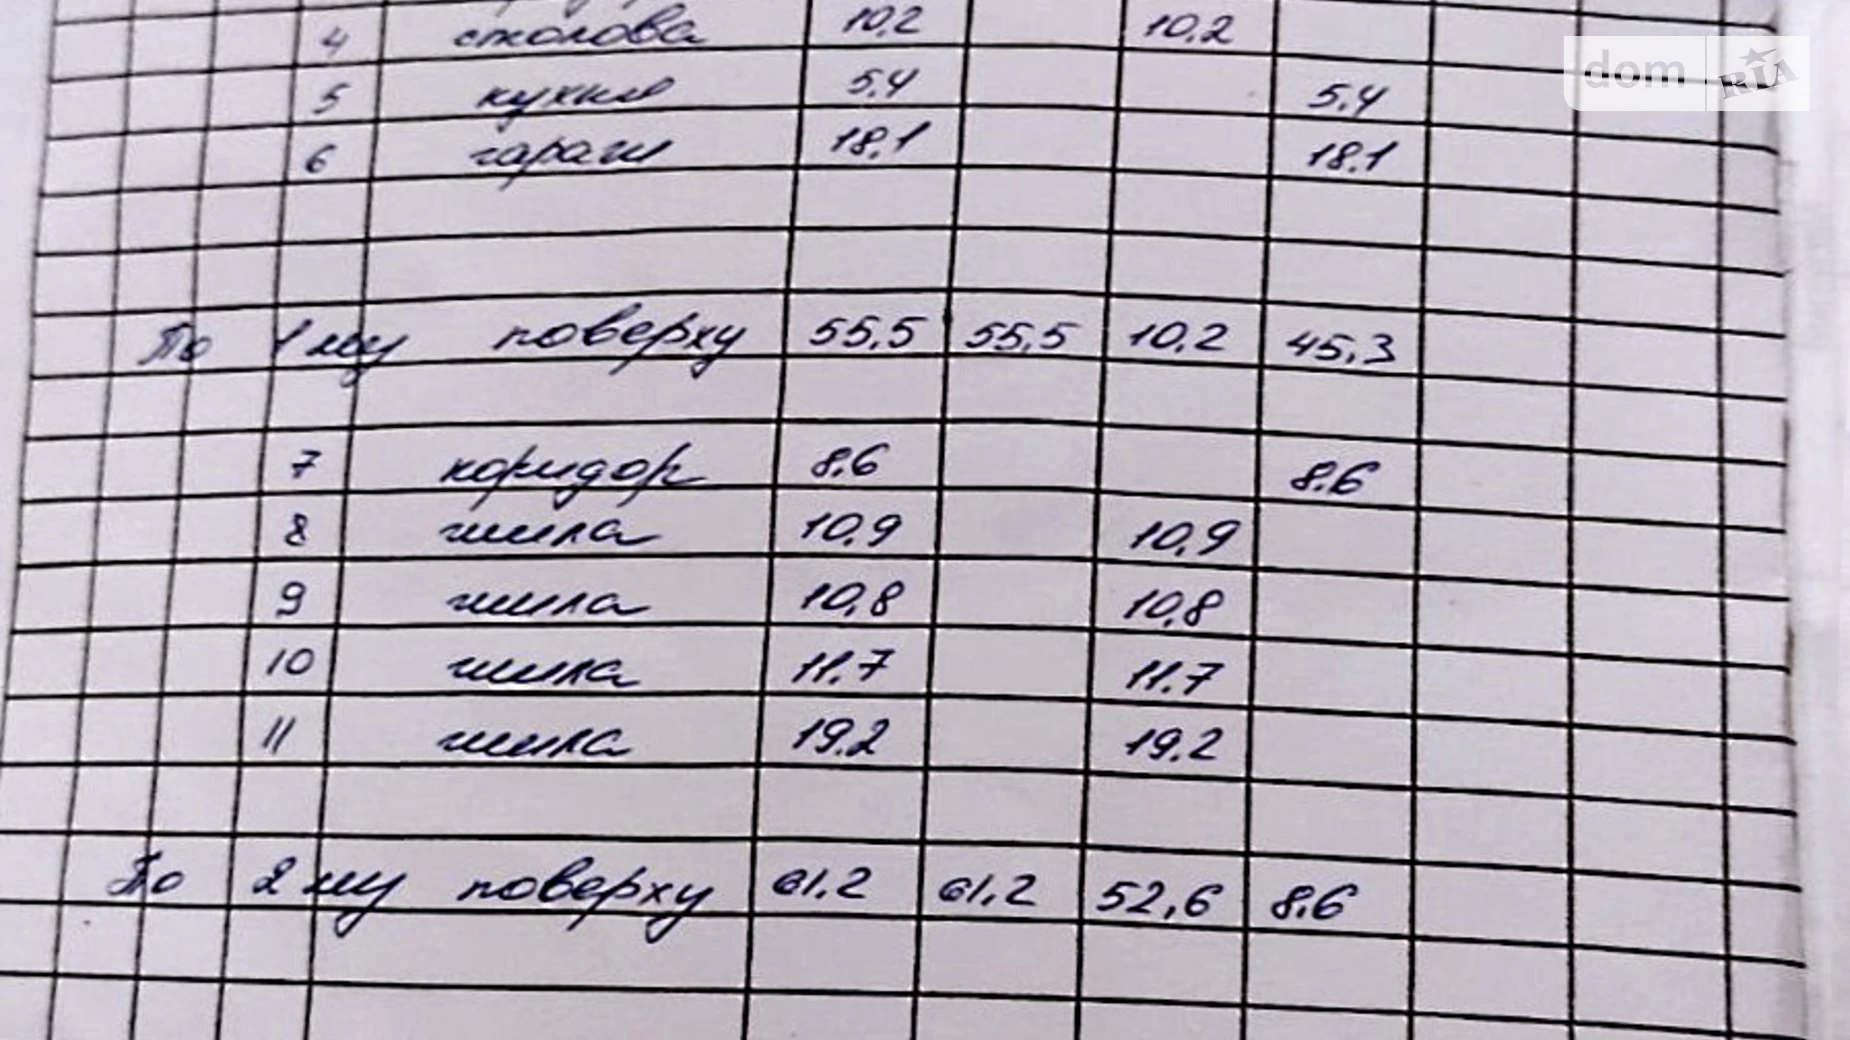 4 столова 10,2 10,2
5 кухня 5,4 5,4
6 гараж 18,1 18,1
По 1 му поверху 55,5 55,5 10,2 45,3
7 коридор 8,6 8,6
8 жила 10,9 10,9
9 жила 10,8 10,8
10 жила 11.7 11.7
11 жила 19.2 19.2
По 2 му поверху 61,2 61,2 52,6 8,6
dom RIA